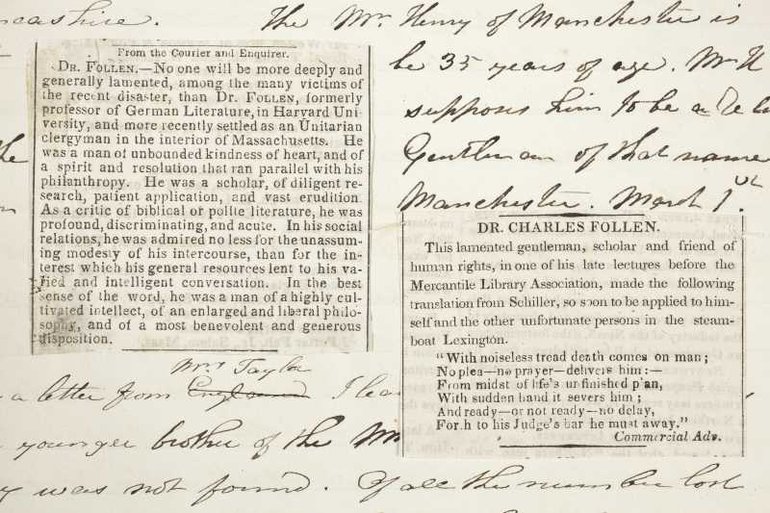 ncashire. The Mr. Henry of Manchester is
be 35 years of age. Mr H
supposes him to be a
the Gentleman of that name
Manchester. March 1st.
From the Courier and Enquirer.
DR. FOLLEN.—No one will be more deeply and
generally lamented, among the many victims of
the recent disaster, than Dr. FOLLEN, formerly
professor of German Literature, in Harvard Uni-
versity, and more recently settled as an Unitarian
clergyman in the interior of Massachusetts. He
was a man of unbounded kindness of heart, and of
a spirit and resolution that ran parallel with his
philanthropy. He was a scholar, of diligent re-
search, patient application, and vast erudition.
As a critic of biblical or polite literature, he was
profound, discriminating, and acute. In his social
relations, he was admired no less for the unassum-
ing modesty of his intercourse, than for the in-
terest which his general resources lent to his va-
ried and intelligent conversation. In the best
sense of the word, he was a man of a highly cul-
tivated intellect, of an enlarged and liberal philo-
sophy, and of a most benevolent and generous
disposition.
DR. CHARLES FOLLEN.
This lamented gentleman, scholar and friend of
human rights, in one of his late lectures before the
Mercantile Library Association, made the following
translation from Schiller, so soon to be applied to him-
self and the other unfortunate persons in the steam-
boat Lexington.
"With noiseless tread death comes on man;
No plea—no prayer—delivers him:—
From midst of life's unfinished plan,
With sudden hand it severs him;
And ready—or not ready—no delay,
For.h to his Judge's bar he must away."
Commercial Adv.
Mrs Taylor
a letter from England I lea
younger brother of the Mr
y was not found. Of all the number lost